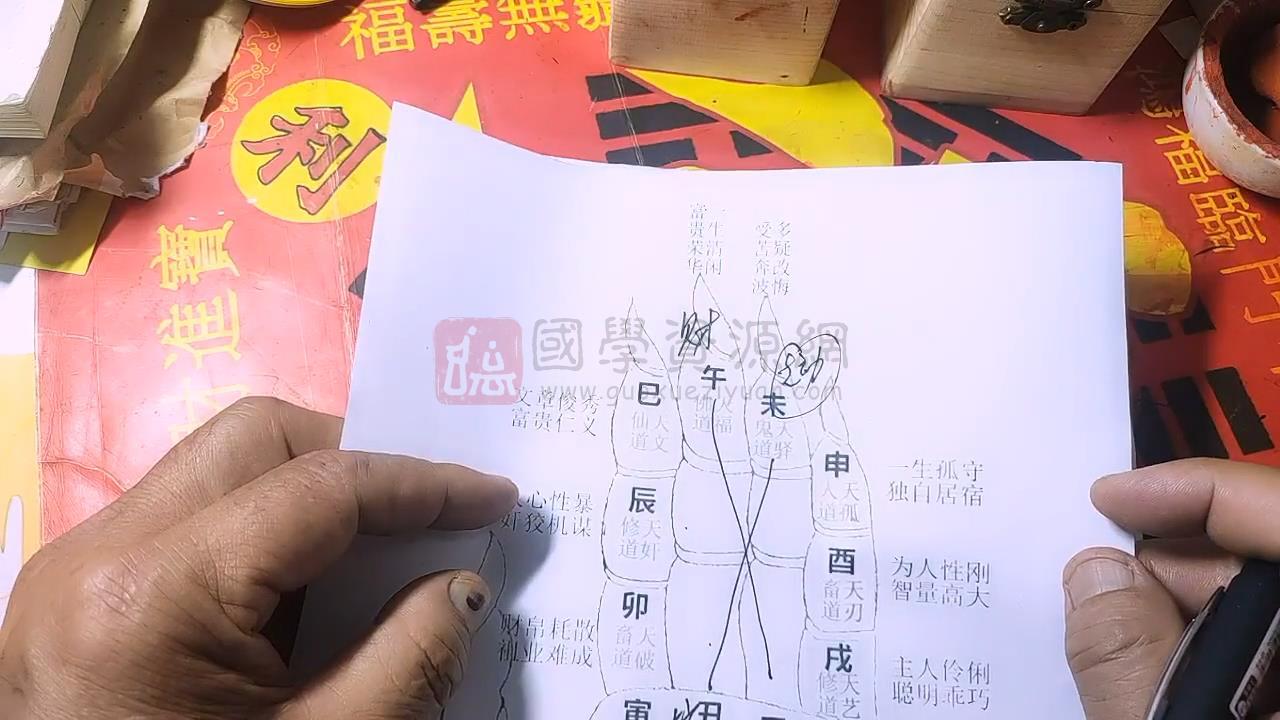 福壽無疆
利
財進寶
鴻福臨門
富貴荣华
一生清闲
受苦奔波
多疑改悔
财
午
人福
佛道
巳
天文
仙道
未
天驿
鬼道
文章俊秀
富贵仁义
國學資源網
www.guoxueziyuan.com
申
天孤
人道
一生孤守
独自居宿
心性暴
奸狡机谋
辰
天奸
修道
酉
天刃
畜道
为人性刚
智量高大
财帛耗散
祖业难成
卯
天破
畜道
戌
天艺
修道
主人伶俐
聪明乖巧
寅
丑